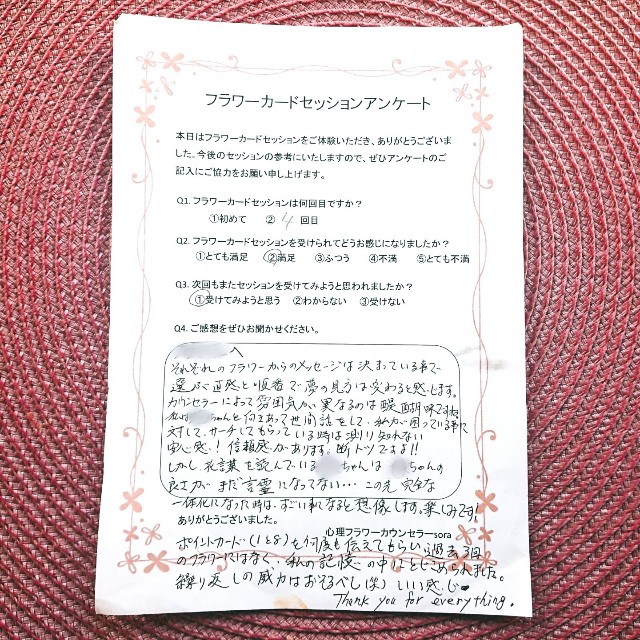 フラワーカードセッションアンケート
本日はフラワーカードセッションをご体験いただき、ありがとうございま
した。今後のセッションの参考にいたしますので、ぜひアンケートのご
記入にご協力をお願い申し上げます。
Q1. フラワーカードセッションは何回目ですか？
①初めて ② 4 回目
Q2. フラワーカードセッションを受けられてどうお感じになりましたか？
①とても満足 ②満足 ③ふつう ④不満 ⑤とても不満
Q3. 次回もまたセッションを受けてみようと思われましたか？
①受けてみようと思う ②わからない ③受けない
Q4. ご感想をぜひお聞かせください。
へ
それぞれのフラワーからのメッセージは決まっている事で
選ぶ直感と順番で夢の見方は変わると感じます。
カウンセラーによって雰囲気が異なるのは醍醐味ですね
私は ちゃんと向きあって世間話をして、私が困っている事に
対して、サーチしてもらっている時は測り知れない
安心感！信頼感があります。断トツですよ!!
しかし花言葉を読んでいる ちゃんは ちゃんの
良さがまだ言霊になってない… この先、完全な
一体化になった時は、すごい事になると想像します。楽しみです！
ありがとうございました。
心理フラワーカウンセラーsora
ポイントカード（1と8）を何度も伝えてもらい、過去3回
のフラワーではなく、私の記憶の中にとじこめられました。
繰り返しの威力はおそるべし（笑）いい感じ
Thank you for everything.